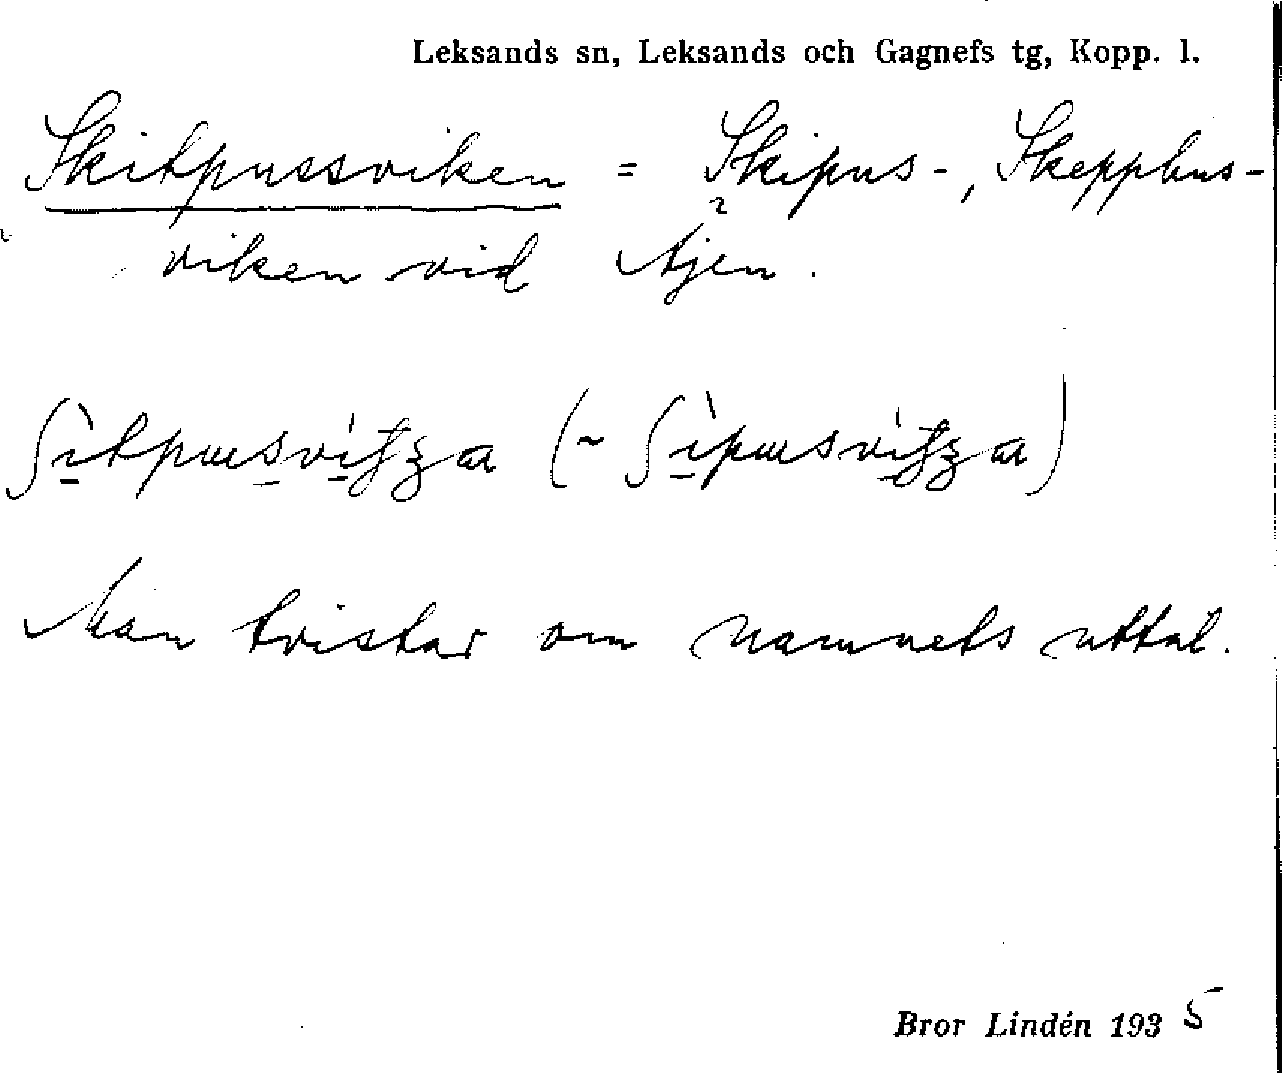 Leksands sn, Leksands och Gagnefs tg, Kopp. l.
Skitpussviken = Skipus-, Skepphus-
viken vid Åjen.
Man tvistar om namnets uttal.
Bror Lindén 1935